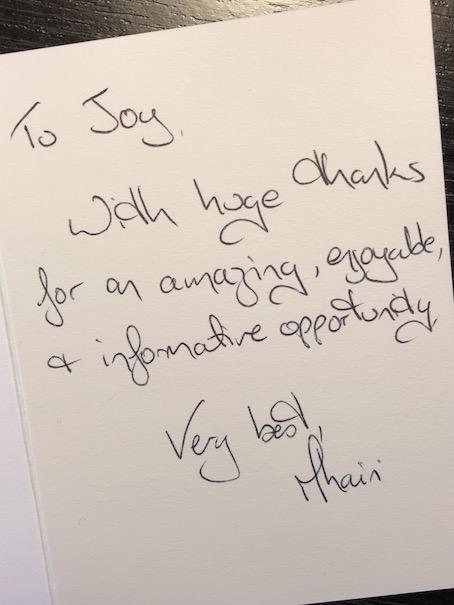 To Joy,
With huge thanks
for an amazing, enjoyable,
& informative opportunity,
Very best,
Mhairi